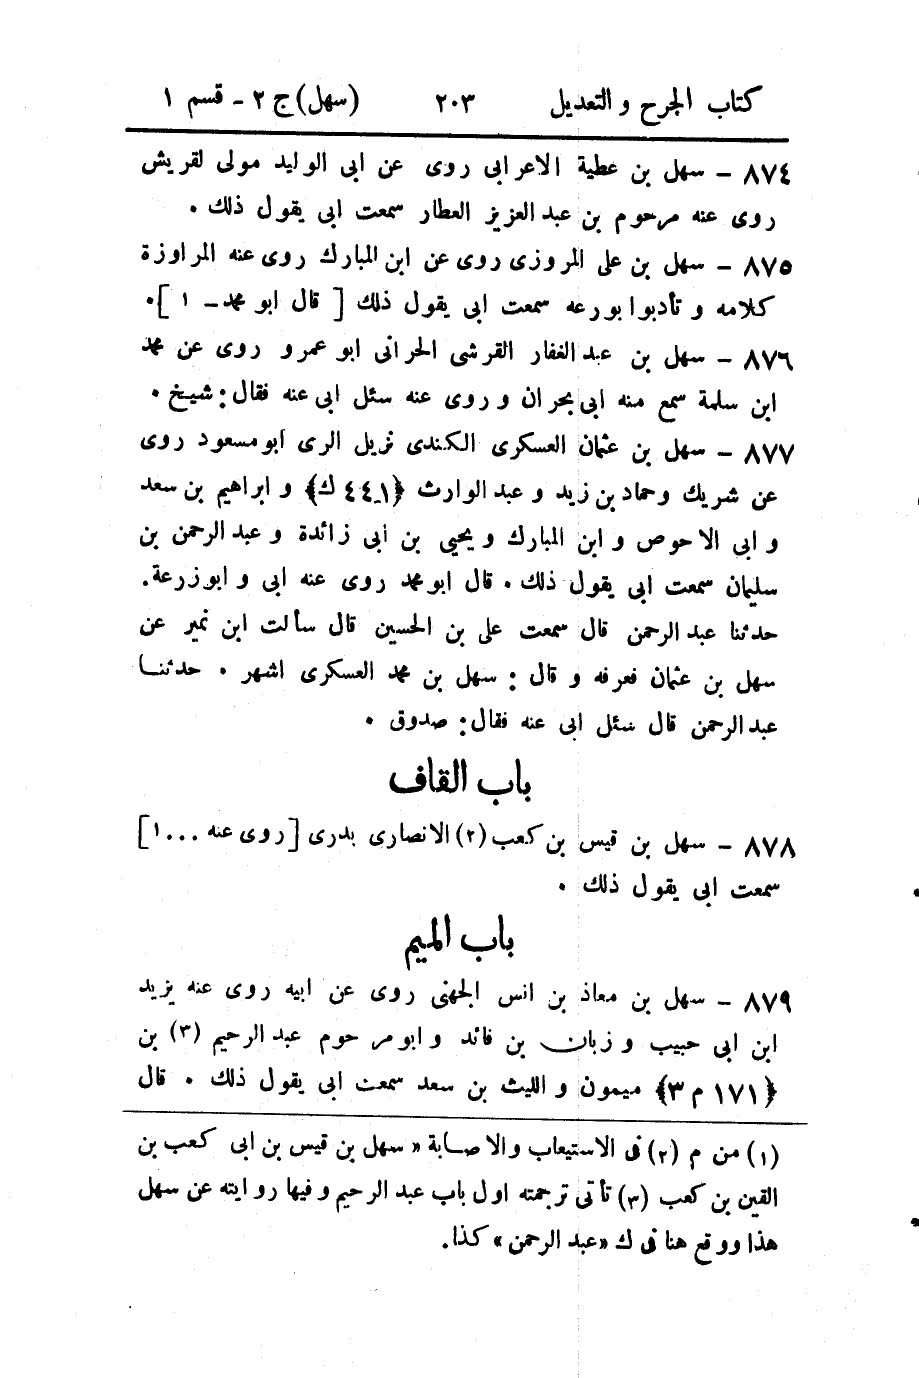 كتاب الجرح و التعديل ٢٠٣ (سهل) ج ٢ - قسم ١
٨٧٤ - سهل بن عطية الاعرابى روى عن ابى الوليد مولى لقريش
روى عنه مرحوم بن عبد العزيز العطار سمعت ابى يقول ذلك .
٨٧٥ - سهل بن على المروزى روى عن ابن المبارك روى عنه المراوزة
كلامه و تأدبوا بورعه سمعت ابى يقول ذلك [ قال ابو محمد - ١ ].
٨٧٦ - سهل بن عبد الغفار القرشى الحرانى ابو عمرو روى عن محمد
ابن سلمة سمع منه ابى بحران و روى عنه سئل ابى عنه فقال : شيخ .
٨٧٧ - سهل بن عثمان العسكرى الكندى نزيل الرى ابو مسعود روى
عن شريك و حماد بن زيد و عبد الوارث ﴿٤٤١ ك﴾ و ابراهيم بن سعد
و ابى الاحوص و ابن المبارك و يحيى بن ابى زائدة و عبد الرحمن بن
سليمان سمعت ابى يقول ذلك . قال ابو محمد روى عنه ابى و ابو زرعة.
حدثنا عبد الرحمن قال سمعت على بن الحسين قال سألت ابن نمير عن
سهل بن عثمان فعرفه و قال : سهل بن محمد العسكرى اشهر . حدثنا
عبد الرحمن قال سئل ابى عنه فقال: صدوق .
باب القاف
٨٧٨ - سهل بن قيس بن كعب (٢) الانصارى بدرى [روى عنه ...١]
سمعت ابى يقول ذلك .
باب الميم
٨٧٩ - سهل بن معاذ بن انس الجهنى روى عن ابيه روى عنه يزيد
ابن ابى حبيب و زبان بن فائد و ابو مرحوم عبد الرحيم (٣) بن
﴿١٧١ م ٣﴾ ميمون و الليث بن سعد سمعت ابى يقول ذلك . قال
(١) من م (٢) فى الاستيعاب والاصابة « سهل بن قيس بن ابى كعب بن
القين بن كعب (٣) تأتى ترجمته اول باب عبد الرحيم و فيها روايته عن سهل
هذا ووقع هنا فى ك «عبد الرحمن» كذا.